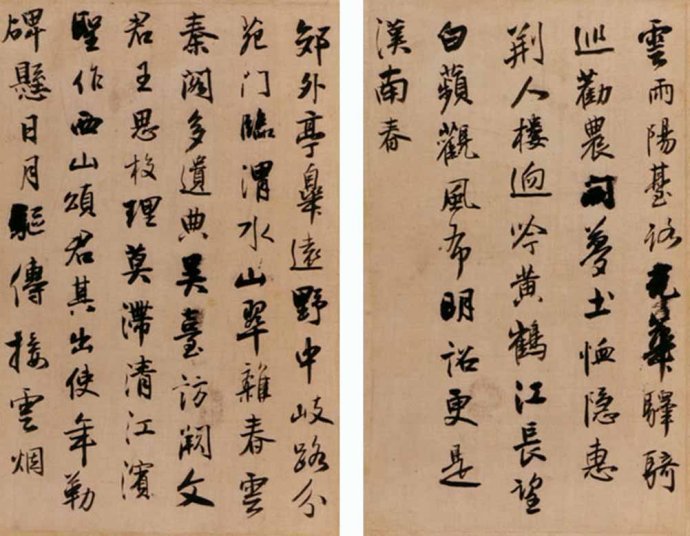 雲雨陽臺路光華驛騎
巡勸農開夢土恤隱惠
荆人樓逈吟黃鶴江長望
白蘋觀風布明詔更是
漢南春
郊外亭皋遠野中岐路分
苑門臨渭水山翠雜春雲
秦閣多遺典吳臺訪闕文
君王思校理莫滯清江濱
聖作西山頌君其出使年勒
碑懸日月驅傳接雲烟